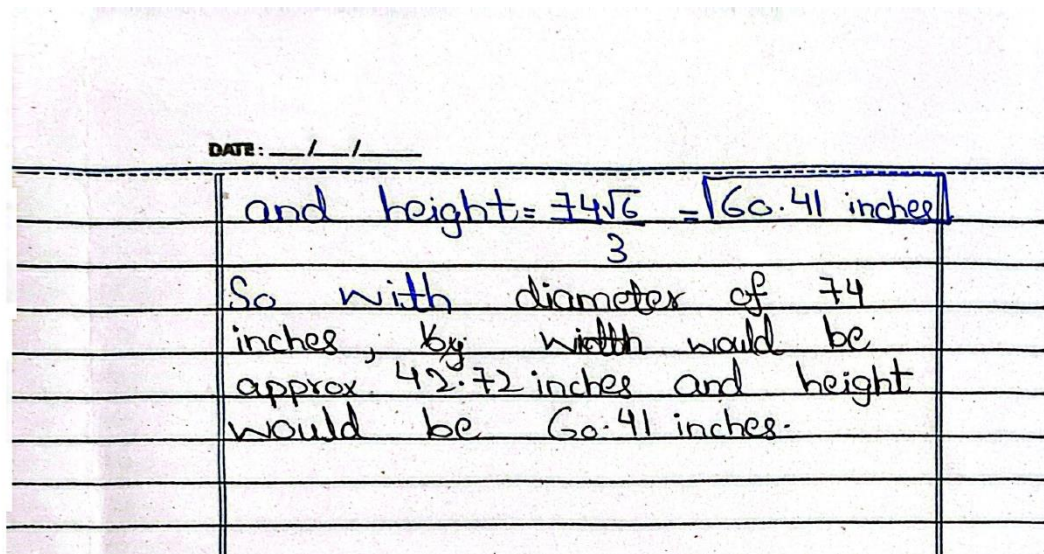 DATE: __/__/____
and height = 74√6/3 = 60.41 inches
So with diameter of 74
inches, width would be
approx. 42.72 inches and height
would be 60.41 inches.